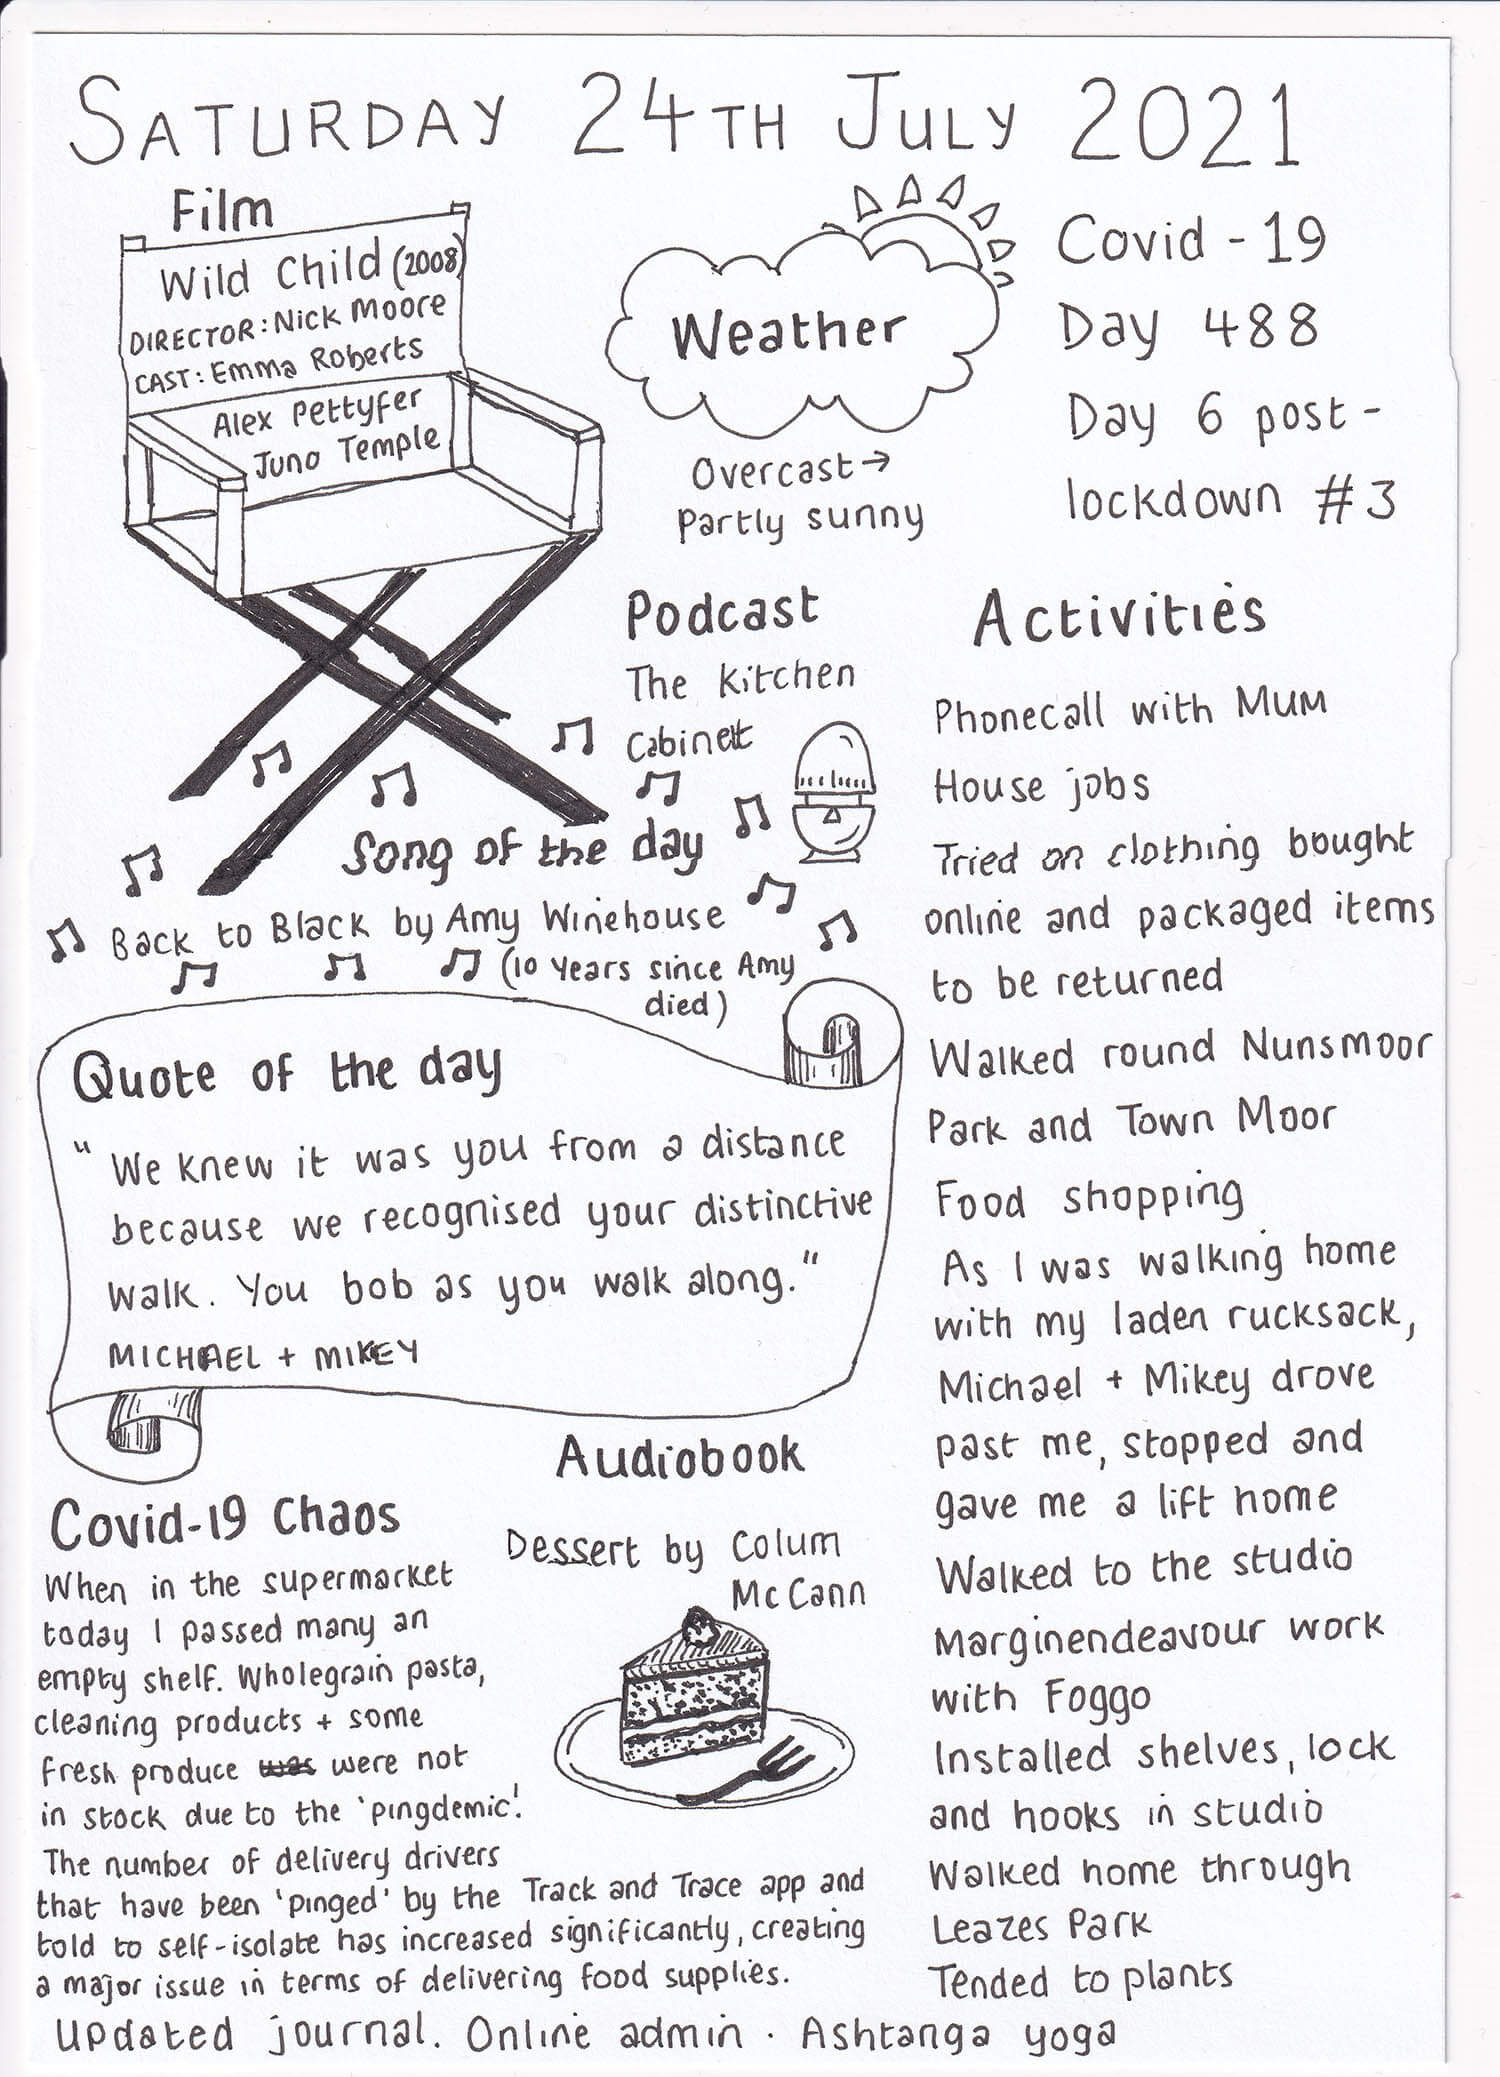 SATURDAY 24TH JULY 2021
Film
Wild Child (2008)
DIRECTOR: Nick Moore
CAST: Emma Roberts
Alex Pettyfer
Juno Temple
Weather
Overcast →
Partly sunny
Covid-19
Day 488
Day 6 post-
lockdown #3
Podcast
The Kitchen
Cabinet
Song of the day
Back to Black by Amy Winehouse
(10 years since Amy
died)
Quote of the day
"We knew it was you from a distance
because we recognised your distinctive
walk. You bob as you walk along."
MICHAEL + MIKEY
Audiobook
Dessert by Colum
McCann
Covid-19 Chaos
When in the supermarket
today I passed many an
empty shelf. Wholegrain pasta,
cleaning products + some
fresh produce was were not
in stock due to the 'pingdemic'.
The number of delivery drivers
that have been 'pinged' by the Track and Trace app and
told to self-isolate has increased significantly, creating
a major issue in terms of delivering food supplies.
Activities
Phonecall with Mum
House jobs
Tried on clothing bought
online and packaged items
to be returned
Walked round Nunsmoor
Park and Town Moor
Food shopping
As I was walking home
with my laden rucksack,
Michael + Mikey drove
past me, stopped and
gave me a lift home
Walked to the studio
Marginendeavour work
with Foggo
Installed shelves, lock
and hooks in studio
Walked home through
Leazes Park
Tended to plants
Updated journal. Online admin. Ashtanga yoga